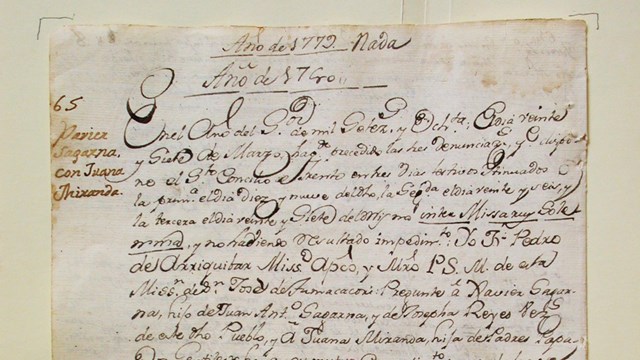 Año de 1779. Nada
Año de 1780.
65
Xavier
Sagarna,
con Juana
Miranda.
En el Año del Sr. de mil Setez. y Ochta. el dia veinte
y Siete de Marzo, precedidas las tres denuncias, que dispo
ne el Sto. Concilio de Trento en tres Dias festivos continuados
la prima. el dia diez y nueve del dho, la Segda. el dia veinte y seis, y
la tercera el dia veinte y Siete del dho mes inter Missarum Sole
mnia, y no habiendo resultado impedimto. Yo Fr. Pedro
de Arriquibar Misso. Apco. y Mtro. P. S. M. de esta
Misso. de Sn. Jose de Tumacacori Pregunte a Xavier Sagar
na, hijo de Juan Anto. Sagarna, y de Josepha Reyes Vezs.
de este dho Pueblo, y a Juana Miranda, hija de Padres Papa